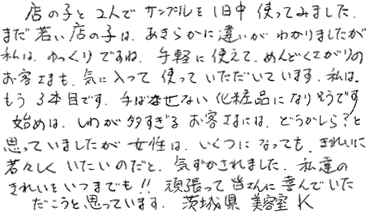 店の子と2人でサンプルを1日中使ってみました。
まだ若い店の子は、あきらかに違いがわかりましたが
私は、ゆっくりですね。手軽に使えて、めんどくさがりの
お客さまも、気に入って使っていただいています。私は、
もう3本目です。手ばなせない化粧品になりそうです
始めは、しわが多すぎるお客さまには、どうかしら?と
思っていましたが女性は、いくつになっても、きれいに
若々しくいたいのだと、気ずかされました。私達の
きれいをいつまでも!!頑張って皆さんに喜んでいた
だこうと思っています。茨城県 美容室 K